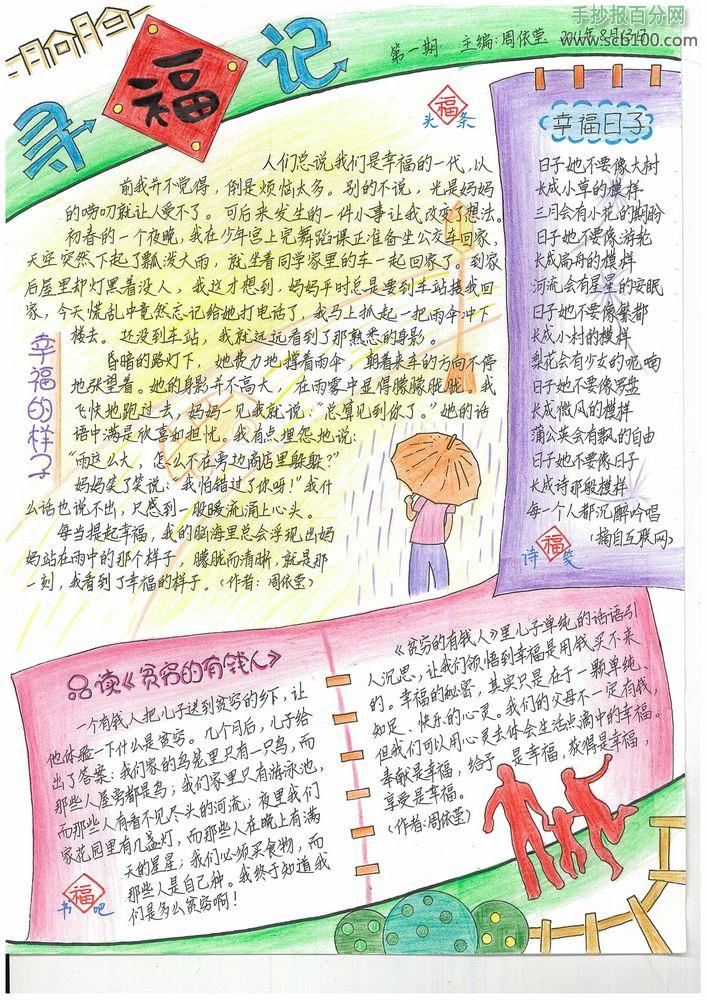 手抄报百分网
www.scb100.com
寻福记
第一期 主编:周依莹 2011年8月13日
福
头条
人们总说我们是幸福的一代,以
前我并不觉得,倒是烦恼太多。别的不说,光是妈妈
的唠叨就让人受不了。可后来发生的一件小事让我改变了想法。
初春的一个夜晚,我在少年宫上完舞蹈课正准备坐公交车回家,
天空突然下起了瓢泼大雨,就坐着同学家里的车一起回家了。到家
后屋里却灯黑着没人,我这才想到,妈妈平时总是要到车站接我回
家,今天慌乱中竟然忘记给她打电话了,我马上抓起一把雨伞冲下
楼去。还没到车站,我就远远看到了那熟悉的身影。
昏暗的路灯下,她费力地撑着雨伞,朝着来车的方向不停
地张望着。她的身影并不高大,在雨雾中显得朦朦胧胧。我
飞快地跑过去,妈妈一见我就说:“总算见到你了。”她的话
语中满是欣喜和担忧。我有点埋怨地说:
“雨这么大,怎么不在旁边商店里躲躲?”
妈妈笑了笑说:“我怕错过了你呀!”我什
么话也说不出,只感到一股暖流涌上心头。
每当提起幸福,我的脑海里总会浮现出妈
妈站在雨中的那个样子,朦胧而清晰,就是那
一刻,我看到了幸福的样子。(作者:周依莹)
幸福的样子
幸福日子
日子她不要像大树
长成小草的模样
三月会有小花的期盼
日子她不要像游轮
长成扁舟的模样
河流会有星星的安眠
日子她不要像繁都
长成小村的模样
梨花会有少女的呢喃
日子她不要像罗盘
长成微风的模样
蒲公英会有飘的自由
日子她不要像日子
长成诗那般模样
每一个人都沉醉吟唱
(摘自互联网)
福
诗笺
品读《贫穷的有钱人》
一个有钱人把儿子送到贫穷的乡下,让
他体验一下什么是贫穷。几个月后,儿子给
出了答案:我们家的鸟笼里只有一只鸟,而
那些人屋旁都是鸟;我们家里只有游泳池,
而那些人有看不见尽头的河流;夜里我们
家花园里有几盏灯,而那些人在晚上有满
天的星星;我们必须买食物,而
那些人是自己种。我终于知道我
们是多么贫穷啊!
福
书吧
《贫穷的有钱人》里儿子单纯的话语引
人沉思,让我们领悟到幸福是用钱买不来
的。幸福的秘密,其实只是在于一颗单纯、
知足、快乐的心灵。我们的父母不一定有钱,
但我们可以用心灵去体会生活点滴中的幸福。
奉献是幸福,给予是幸福,获得是幸福,
享受是幸福。
(作者:周依莹)